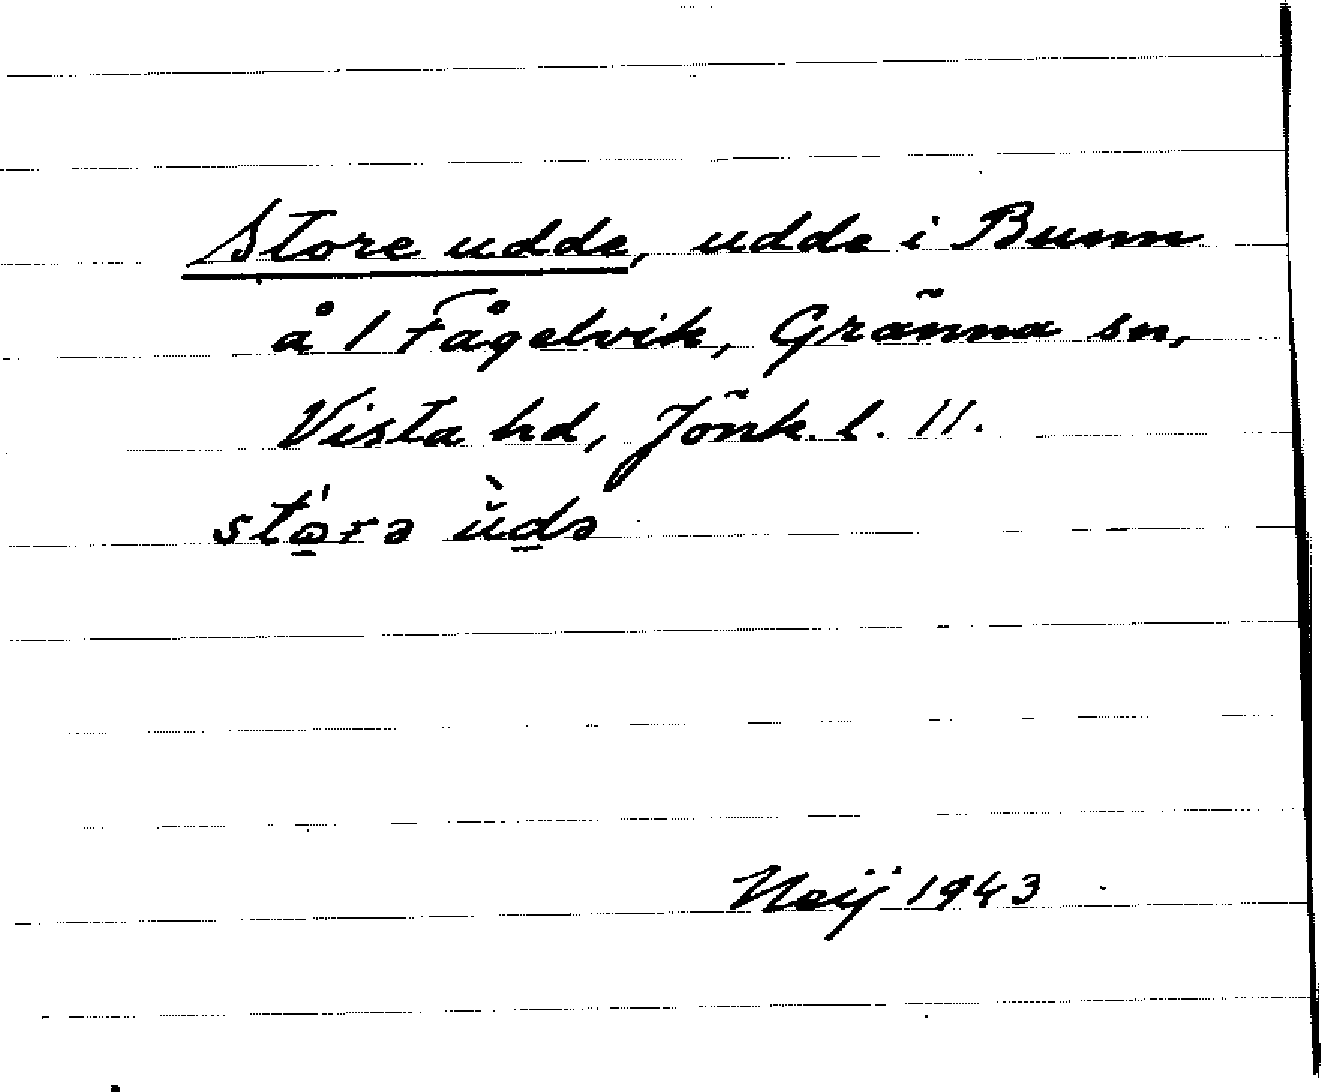 Store udde, udde i Bunn
å 1 Fågelvik, Gränna sn,
Vista hd, Jönk. l. 11.
Neij 1943